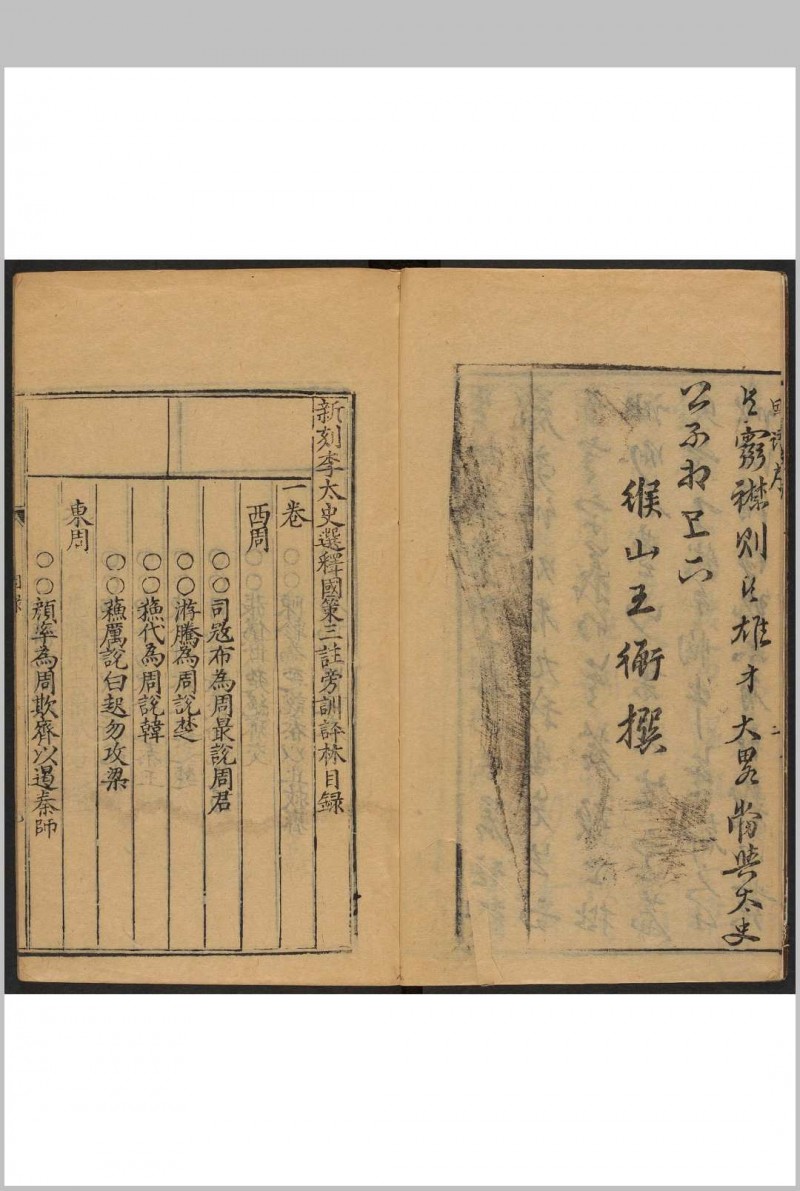 臣霧襟則臣雄才大畧當與太史
公不相上下
緱山王衡撰
新刻李太史選釋國策三註旁訓評林目録
一卷
西周
○○司寇布為周最說周君
○○游騰為周說楚
○○蘓代為周說韓
○○蘓厲說白起勿攻梁
東周
○○顔率為周欺齊以遏秦師
目録